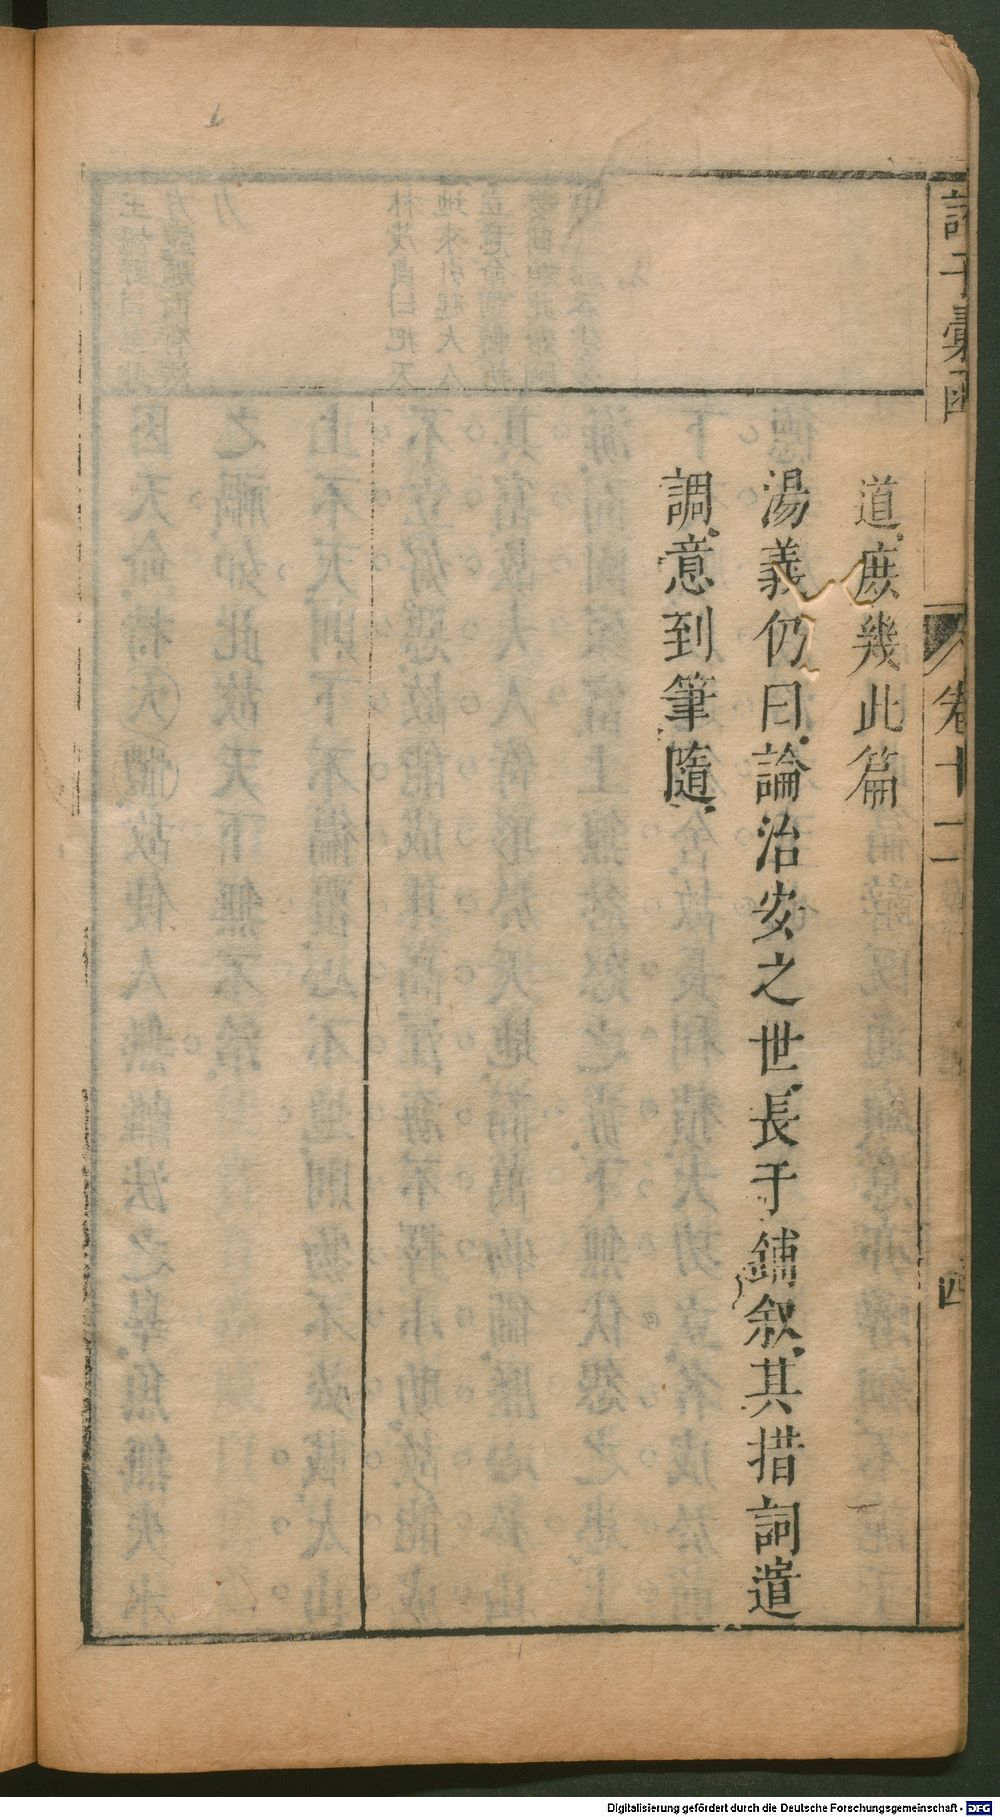 諸子彙函
卷十二
四
道庶幾此篇
湯義仍曰論治安之世長于鋪叙其措詞遣
調意到筆隨
Digitalisierung gefördert durch die Deutsche Forschungsgemeinschaft - DFG